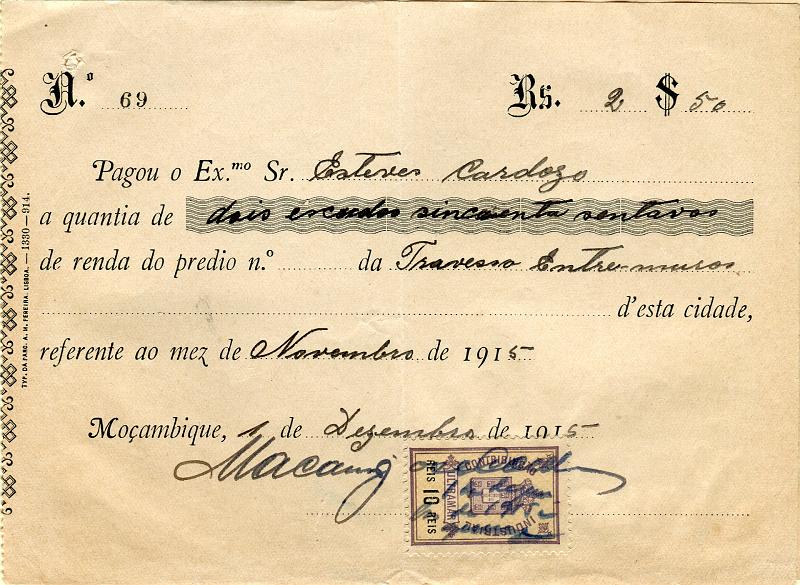 N.º 69 Rs. 2 $ 50
Pagou o Ex.mo Sr. Esteves Cardozo
a quantia de dois escudos sincoenta sentavos
de renda do predio n.º da Travessa Entre-muros
d'esta cidade,
referente ao mez de Novembro de 1915
Moçambique, 1 de Dezembro de 1915
CONTRIBUIÇÃO
INDUSTRIAL
ULTRAMAR
REIS 10 REIS
TYP. DA PARC. A. M. PEREIRA. LISBOA. — 1330—914.